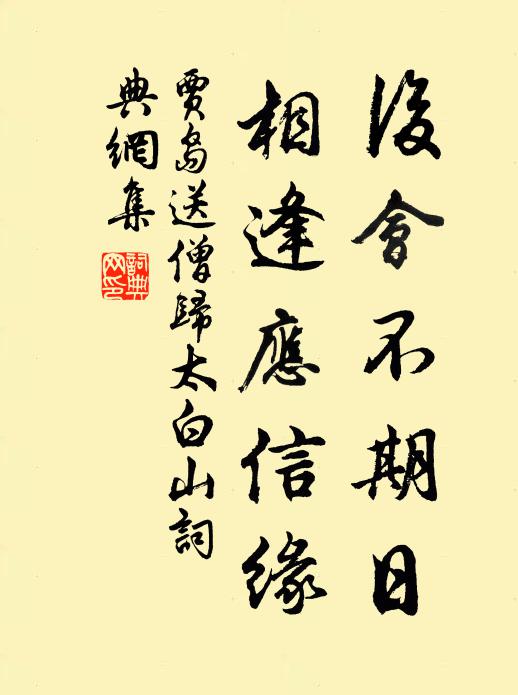 後會不期日
相逢應信緣
賈島送僧歸太白山詞
典網集
詞典
网印